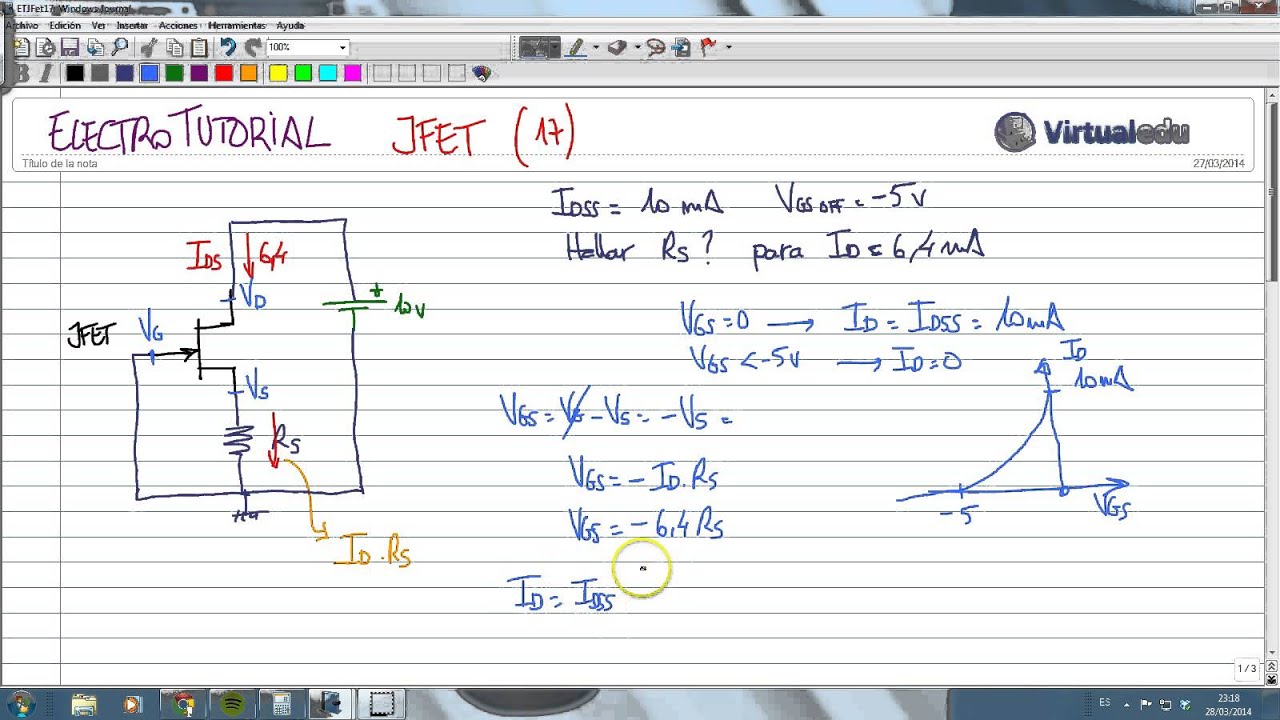 ETJFet17 - Windows Journal
Archivo Edición Ver Insertar Acciones Herramientas Ayuda
100%
ELECTRO TUTORIAL JFET (17)
Virtualedu
Título de la nota
27/03/2014
IDSS = 10 mA VGS OFF = -5V
Hallar RS? para ID = 6,4 mA
IDS 6,4
VD
+
10V
JFET
VG
VS
RS
ID . RS
VGS = 0 → ID = IDSS = 10mA
VGS < -5V → ID = 0
ID
10mA
VGS = VG - VS = - VS =
VGS = - ID . RS
VGS = - 6,4 RS
-5
VGS
ID = IDSS
1 / 3
ES
23:18
28/03/2014